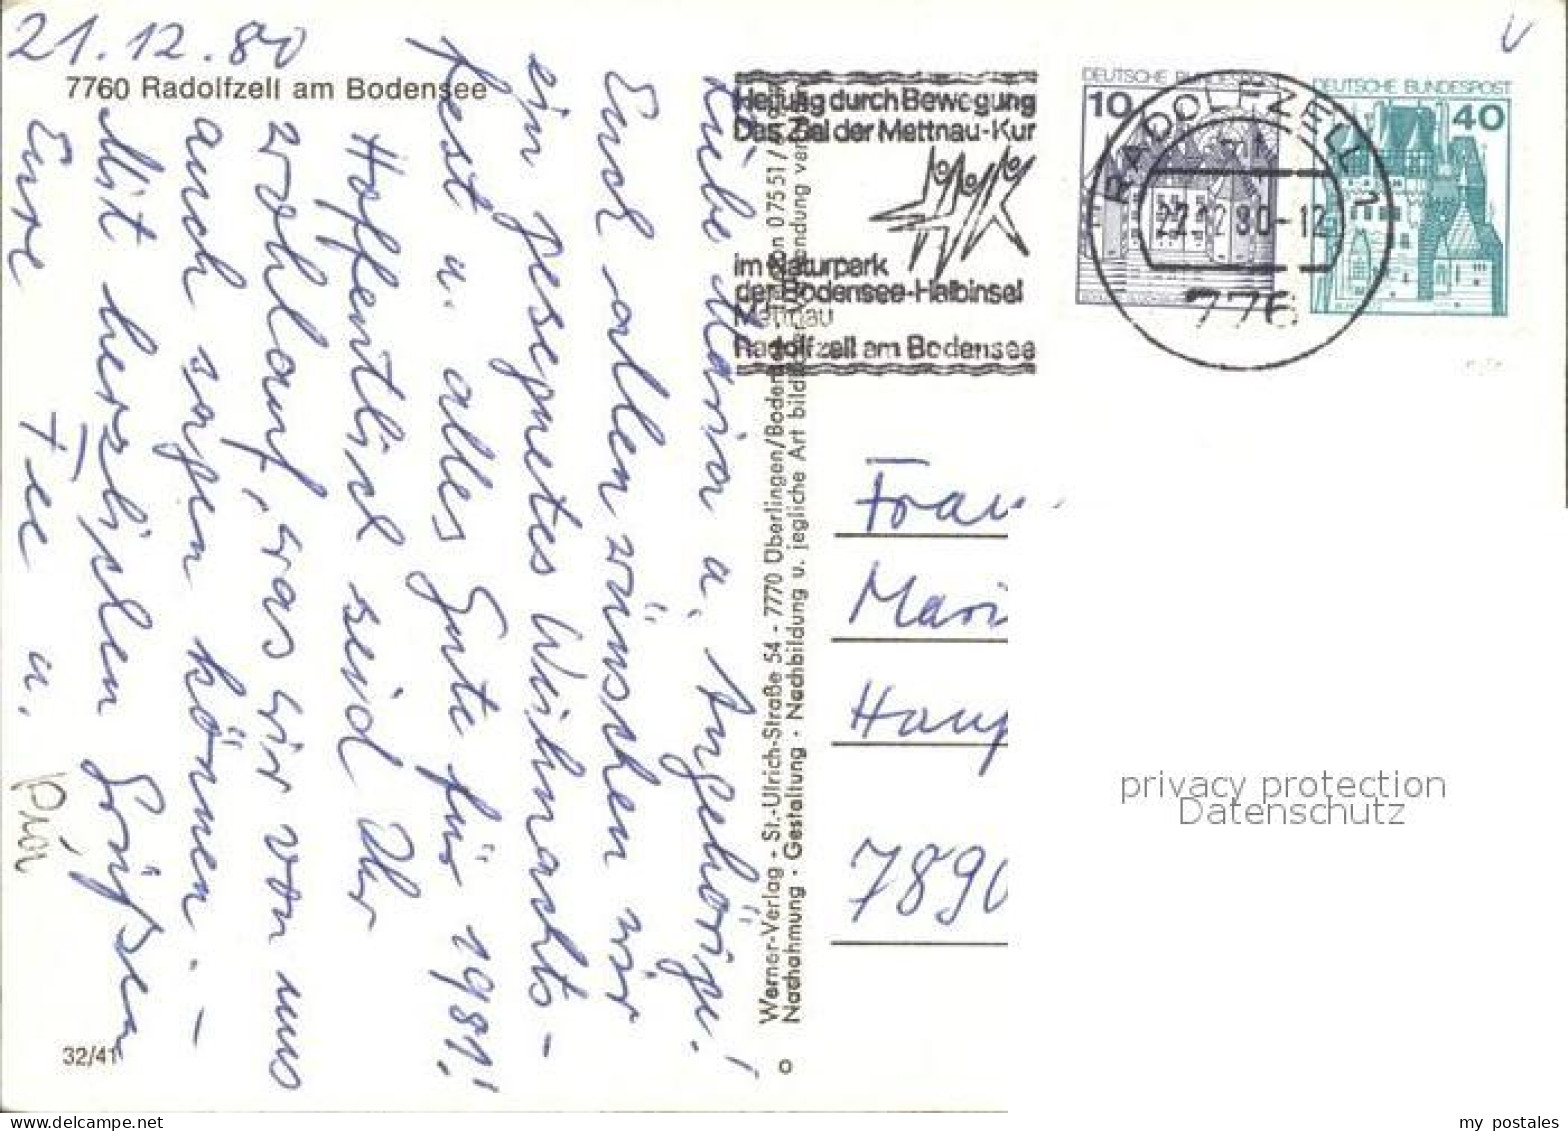 21.12.80
7760 Radolfzell am Bodensee
Liebe Maria u. Angehörige!
Euch allen wünschen wir
ein gesegnetes Weihnachts-
fest u. alles Gute für 1981!
Hoffentlich seid Ihr
wohlauf, was wir von uns
auch sagen können. -
Mit herzlichen Grüßen
Eure Fee u.
Pior
32/41
Werner-Verlag - St.-Ulrich-Straße 54 - 7770 Überlingen/Boden
Nachahmung · Gestaltung · Nachbildung u. jegliche Art bild
07551 /
Heilung durch Bewegung
Das Ziel der Mettnau-Kur
im Naturpark
der Bodensee-Halbinsel
Mettnau
Radolfzell am Bodensee
DEUTSCHE BUNDESPOST
10
DEUTSCHE BUNDESPOST
40
RADOLFZELL
22.12.80-12
776
Frau
Mari
Haup
7890
privacy protection
Datenschutz
my postales